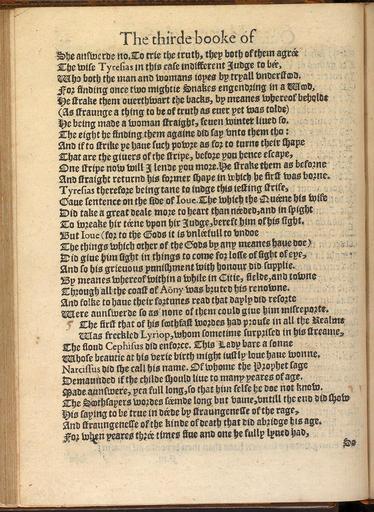 The thirde booke of
She answerde no. To trie the truth, they both of them agree
The wise Tyresias in this case indifferent Judge to bee,
Who both the man and womans ioyes by tryall understood.
For finding once two mightie Snakes engendring in a Wood,
He strake them overthwart the backs, by meanes whereof beholde
(As straunge a thing to be of truth as ever yet was tolde)
He being made a woman straight, seven winter lived so.
The eight he finding them againe did say unto them tho:
And if to strike ye have such powre as for to turne their shape
That are the givers of the stripe, before you hence escape,
One stripe now will I lende you more. He strake them as beforne
And straight returnd his former shape in which he first was borne.
Tyresias therefore being tane to iudge this iesting strife,
Gave sentence on the side of Iove. The which the Queene his wife
Did take a great deale more to heart than needed, and in spight
To wreake hir teene upon his Judge, bereft him of his sight.
But Iove (for to the Gods it is unleefull to undoe
The things which other of the Gods by any meanes have doe)
Did give him sight in things to come for losse of sight of eye,
And so his grievous punishment with honour did supplie.
By meanes whereof within a while in Citie, fielde, and towne
Through all the coast of Aöny was bruted his renowne.
And folke to have their fortunes read that dayly did resorte
Were aunswerde so as none of them could give him misreporte.
The first that of his soothfast wordes had proufe in all the Realme
Was freckled Lyriop, whom sometime surprised in his streame,
The flood Cephisus did enforce. This Lady bare a sonne
Whose beautie at his verie birth might iustly love have wonne.
Narcissus did she call his name. Of whome the Prophet sage
Demaunded if the childe should live to many yeares of age,
Made aunswere, yea full long, so that him selfe he doe not know.
The Soothsayers wordes seemde long but vaine, untill the end did show
His saying to be true in deede by straungenesse of the rage,
And straungenesse of the kinde of death that did abridge his age.
For when yeares three times five and one he fully lyved had,
So